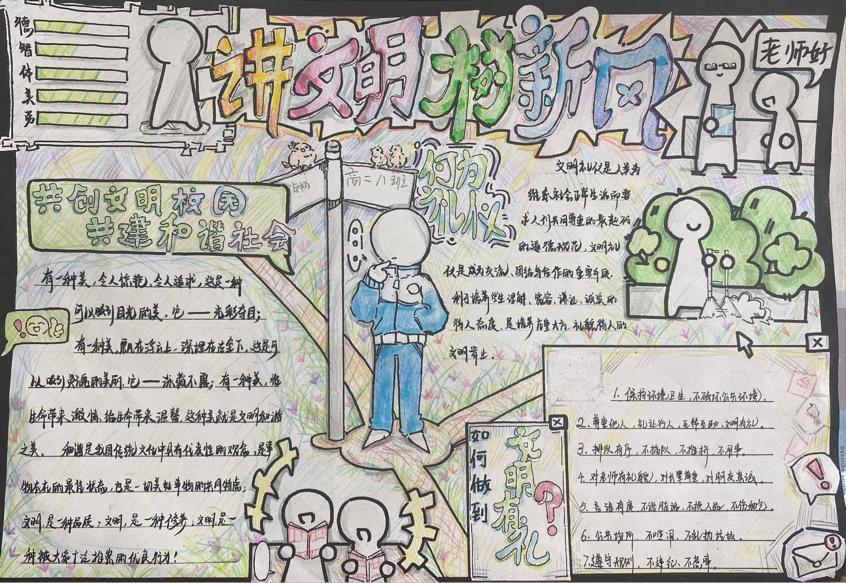 德
智
体
美
劳
讲文明 树新风
老师好
高二八班
何为礼仪
共创文明校园
共建和谐社会
文明礼仪是人类为
维系社会正常生活而要
求人们共同遵守的最起码
的道德规范，文明礼
仪是成为交流、团结与合作的重要手段
利于培养学生理解、宽容、谦让、诚实的
待人态度，是培养
文明举止
有一种美，令人惊艳，令人追求，这是一种
可以吸引目光的美，它——光彩夺目；
有一种美，
以吸引灵魂的美丽，它——深藏不露；有一种美，给
生命带来激情，给生命带来温馨，这种美就是文明和谐
之美。 和谐是我国传统文化中具有代表性的观念，是事
物存在的最佳状态，也是一切美好事物的共同特点，
文明，是一种品质；文明，是一种修养；文明是一
种被大家广泛推崇的优良行为！
如何做到
文明有礼
?
1. 保持环境卫生，不破坏公共环境。
2. 尊重他人，礼让待人，互帮互助，文明有礼。
3. 排队有序，不插队，不推挤，不闹事。
4. 对老师有礼貌，对长辈尊重，对朋友真诚。
5. 言语有度，不说脏话，不
6. 公共场所，不喧闹，不乱扔垃圾。
7. 遵守规则，不违纪，不惹事。